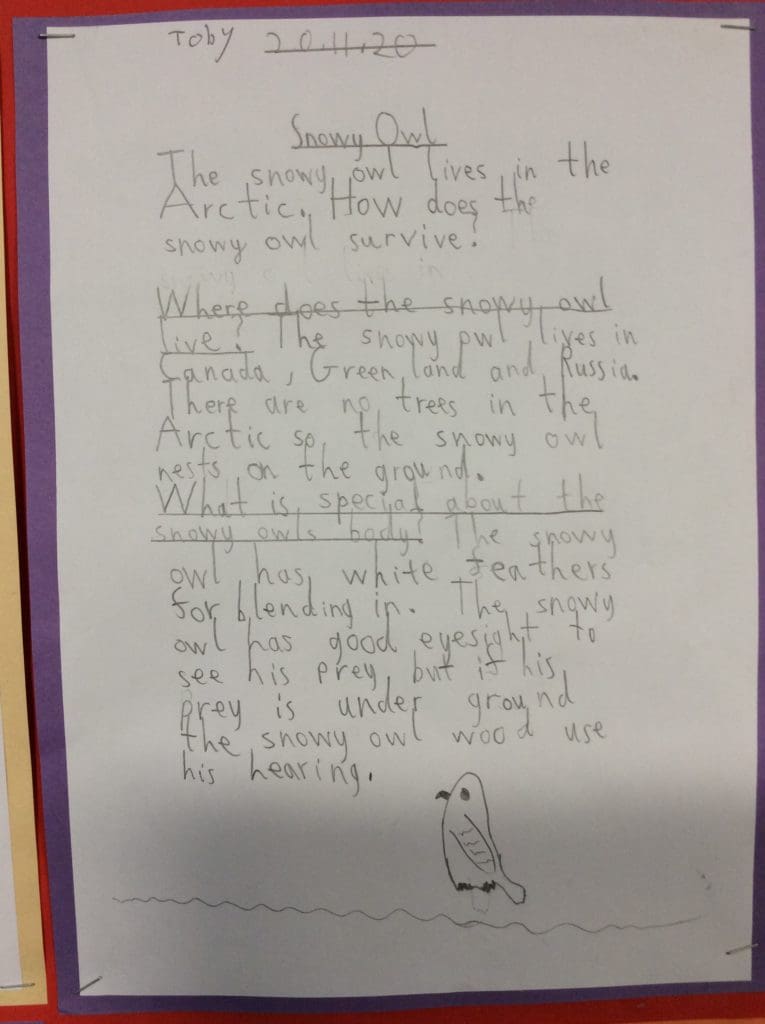 Toby 20.11.20
Snowy Owl
The snowy owl lives in the
Arctic. How does the
snowy owl survive?
Where does the snowy owl
live? The snowy owl lives in
Canada, Green land and Russia.
There are no trees in the
Arctic so the snowy owl
nests on the ground.
What is special about the
snowy owls body? The snowy
owl has white feathers
for blending in. The snowy
owl has good eyesight to
see his prey, but if his
prey is under ground
the snowy owl wood use
his hearing.